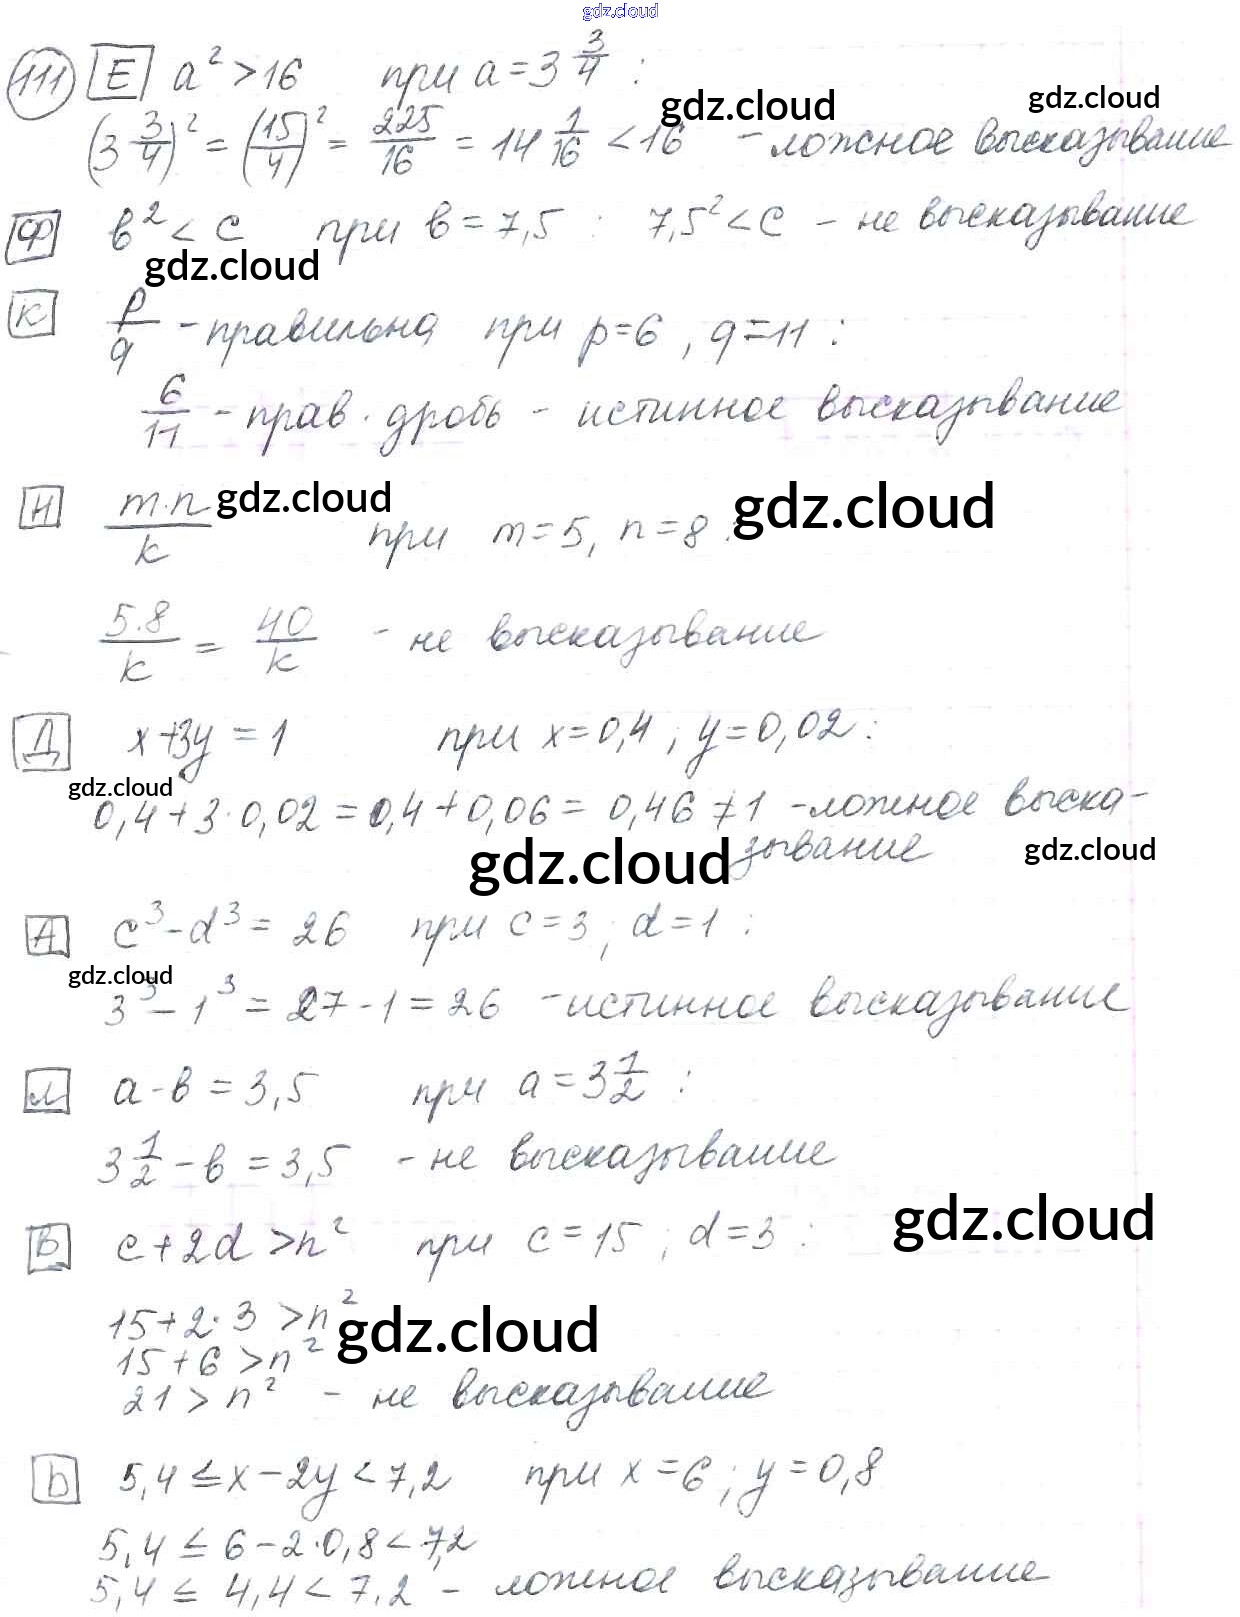 gdz.cloud
111 Е a² > 16 при a = 3 3/4 :
gdz.cloud gdz.cloud
(3 3/4)² = (15/4)² = 225/16 = 14 1/16 < 16 - ложное высказывание
Ф в² < c при в = 7,5 : 7,5² < c - не высказывание
gdz.cloud
К p/q - правильна при p=6, q=11 :
6/11 - прав. дробь - истинное высказывание
Н m·n/k при m=5, n=8 :
gdz.cloud gdz.cloud
5·8/k = 40/k - не высказывание
Д x+3y = 1 при x=0,4 ; y=0,02 :
gdz.cloud
0,4+3·0,02 = 0,4+0,06 = 0,46 ≠ 1 - ложное выска-
зывание
gdz.cloud gdz.cloud
А c³ - d³ = 26 при c=3 ; d=1 :
gdz.cloud
3³ - 1³ = 27 - 1 = 26 - истинное высказывание
Л a - в = 3,5 при a = 3 1/2 :
3 1/2 - в = 3,5 - не высказывание
В c + 2d > n² при c = 15 ; d = 3 :
gdz.cloud
15 + 2·3 > n²
gdz.cloud
15 + 6 > n²
21 > n² - не высказывание
Ь 5,4 ≤ x - 2y < 7,2 при x = 6 ; y = 0,8
5,4 ≤ 6 - 2·0,8 < 7,2
5,4 ≤ 4,4 < 7,2 - ложное высказывание